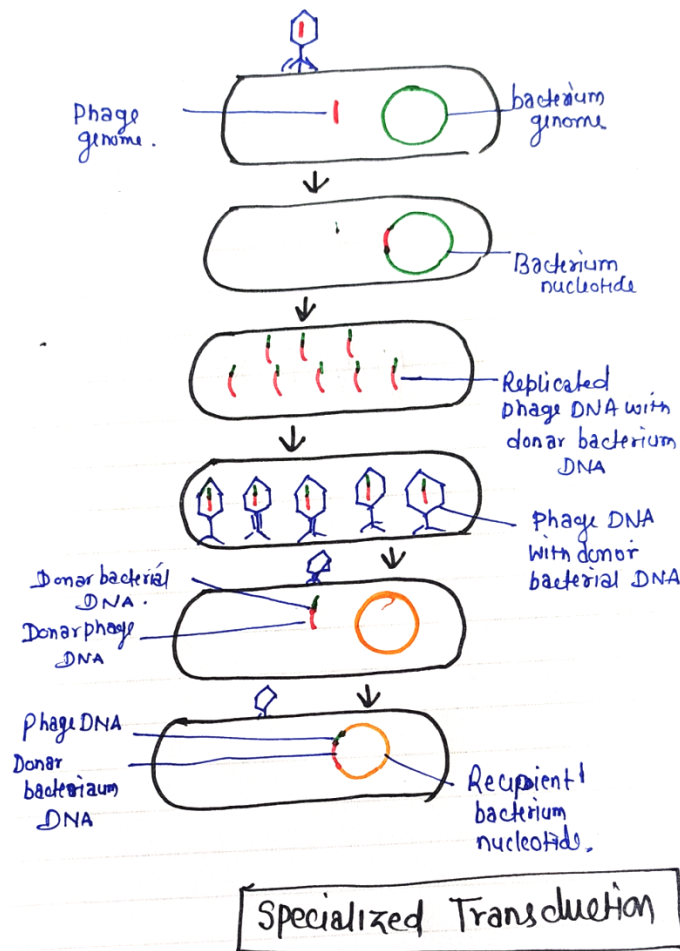 Phage
genome.
bacterium
genome
Bacterium
nucleotide
Replicated
phage DNA with
donar bacterium
DNA
Phage DNA
with donor
bacterial DNA
Donar bacterial
DNA.
Donar phage
DNA
Phage DNA
Donar
bacteriaum
DNA
Recipient
bacterium
nucleotide.
Specialized Transduction